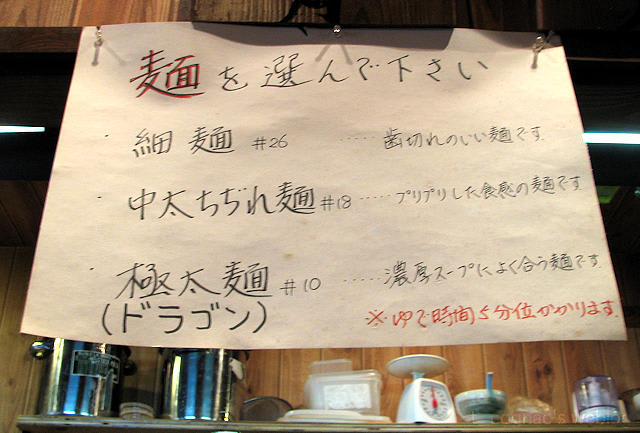 麺を選んで下さい
・細麺 #26 ‥‥‥ 歯切れのいい麺です.
・中太ちぢれ麺 #18 ‥‥‥ プリプリした食感の麺です
・極太麺 #10 ‥‥‥ 濃厚スープによく合う麺です.
(ドラゴン)
※ゆで時間5分位かかります.